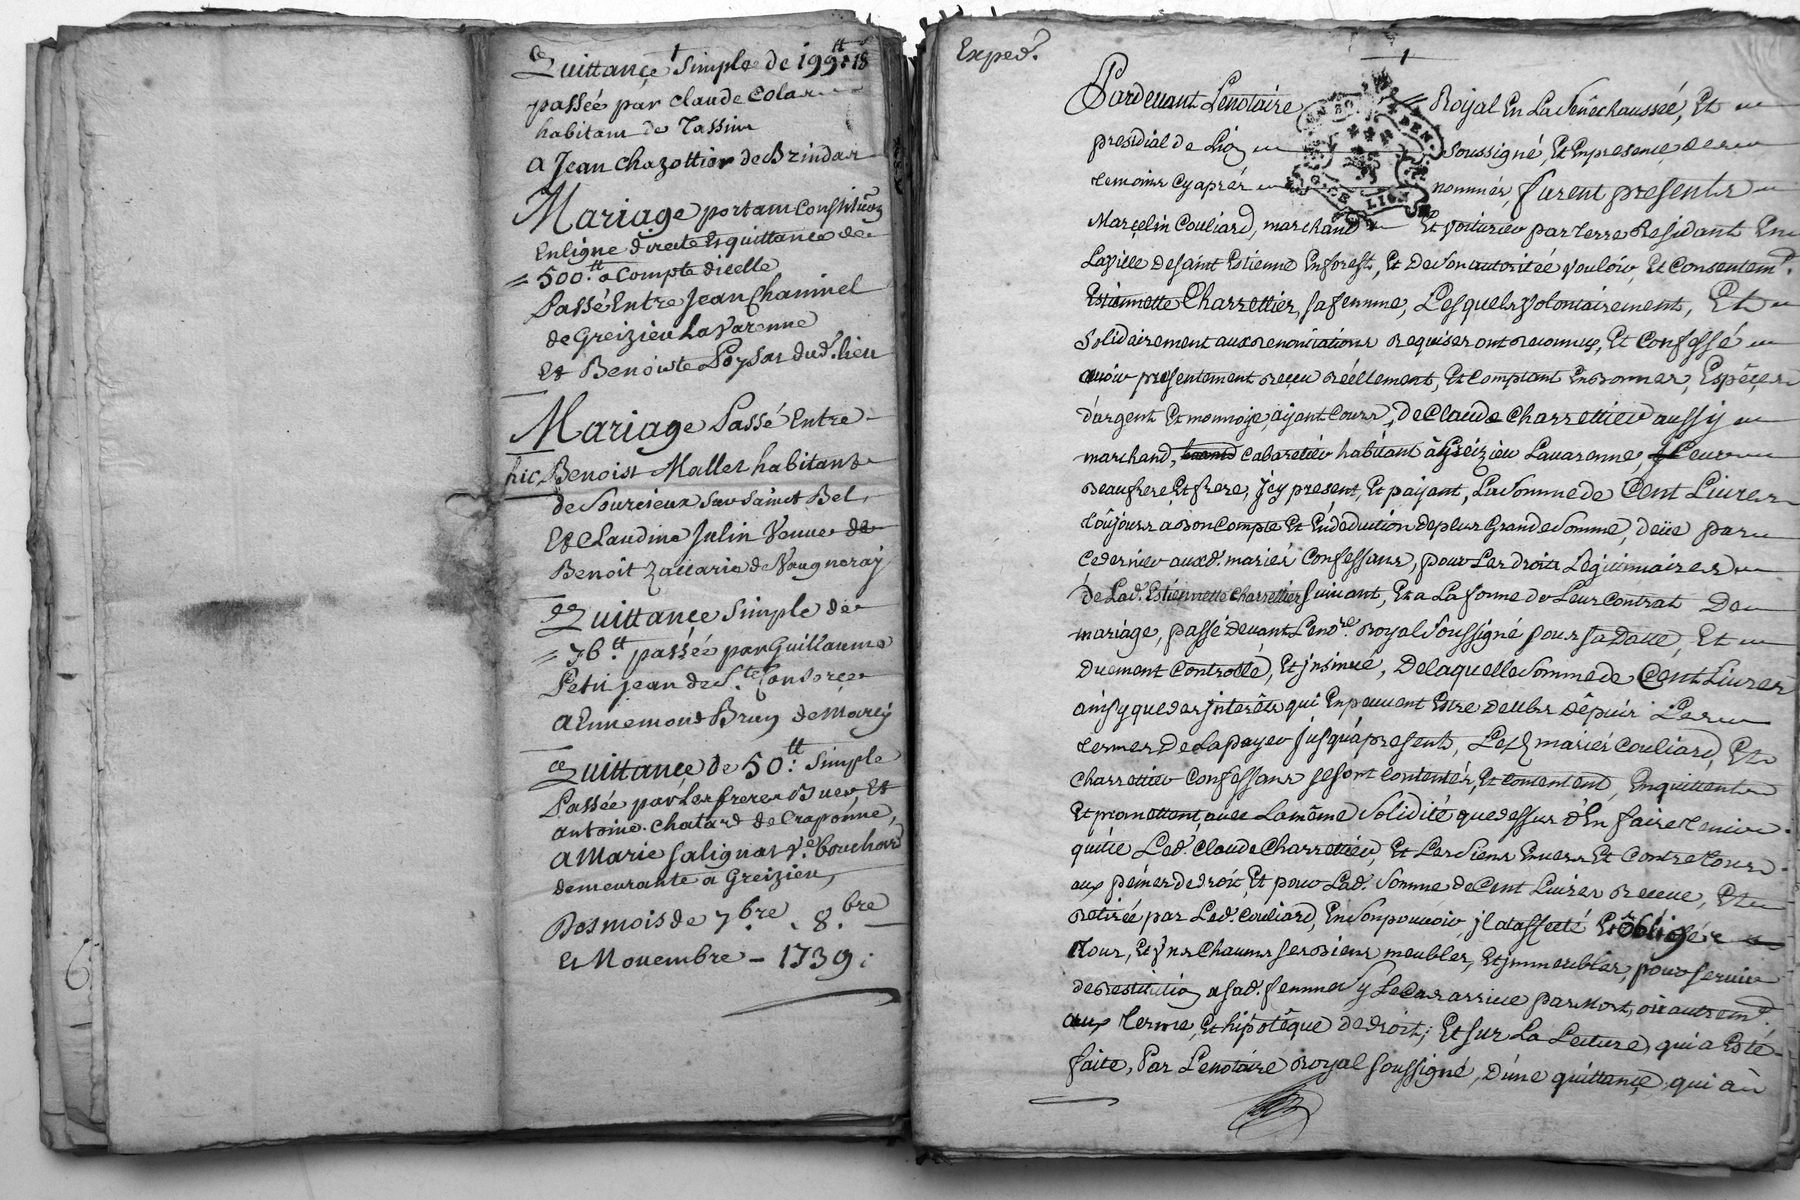 Quittançe simple de 199.tt 18
passée par claude Colas
habitant de Tassin
a Jean chazottier de Brindas
Mariage portant Constitution
En ligne directe Et quittance de
= 500.tt a Compte dicelle
Passé Entre Jean Chaminel
de Greizieu La Varenne
Et Benoiste Poysat dud. lieu
Mariage Passé Entre
hic Benoist Mallet habitant
de Sourcieux sur saint Bel
Et Claudine Julin Veuve de
Benoit Zaccarie de Vaugneray
Quittançe simple de
= 76.tt passée par Guillaume
Petit jean de S.te Consorce
a Ennemond Brun de Marcy
Quittançe de 50.tt simple
Passée par Les freres Et
antoine chatard de Craponne,
a Marie salignat v.e bouchard
demeurante a Greizieu,
Des mois de 7.bre 8.bre
et Novembre - 1739.
Exped.
1
Pardevant Le notaire Royal En La Sénéchausseé, Et
presidial de Lion soussigné, Et En presence des
temoins Cy aprés nommés, furent presents
Marcelin Couliard, marchand Et voiturier par terre Residant En
La ville de saint Estienne En forest, Et De son autoritéé vouloir, Et Consentem.t
Estiennette Charrettier, sa femme, Lesquels volontairement, Et
solidairement aux renonciations requises ont reconnus, Et Confessé
avoir presentement reçeu réellement, Et Comptant En Bonnes, Espéçes
d'argent Et monnoye, ayant Cours, De Claude Charrettier aussy
marchand, Cabaretier habitant à Greizieu Lavarenne, Leur
Beaufrere Et frere, jcy present, Et payant, La Somme de Cent Livres
toûjours a Bon Compte Et En deduction de plus Grande Somme, deüe par
Ce dernier aux d. mariés Confessans, pour Les droits Légitimaires
de Lad. Estiennette Charrettier suivant, Et a La forme de Leur Contrat De
mariage, passé devant Le no.re Royal soussigné sous sa Datte, Et
Duement Controllé, Et jnsinué, De laquelle Somme de Cent Livres
ainsy que des jnterêts qui En peuvent Estre deubs dépuis Les
termes de La payer jusqu'á present, Les d. mariés Couliard, Et
Charrettier Confessans se sont contentés, Et contentent, En quittent
Et promettent, avec La même Solidité que dessus d'En faire tenir
quitte Led. Claude Charrettier, Et Les siens Envers Et Contre tous
aux peines de droit, Et pour Lad. Somme de Cent Livres Receue, Et
Retirée par Led. Couliard, En son pouvoir, jl a affecté Et obligé
tous, Et uns Chacuns ses biens meubles, Et jmmeubles, pour servir
de restitution a sad. femme sy Le Cas arrive par Mort, où autrem.t
aux terme, Et hipotêque De droit; Et sur La Lecture, qui a Esté
faite, Par Le notaire Royal soussigné, D'une quittançe, qui a